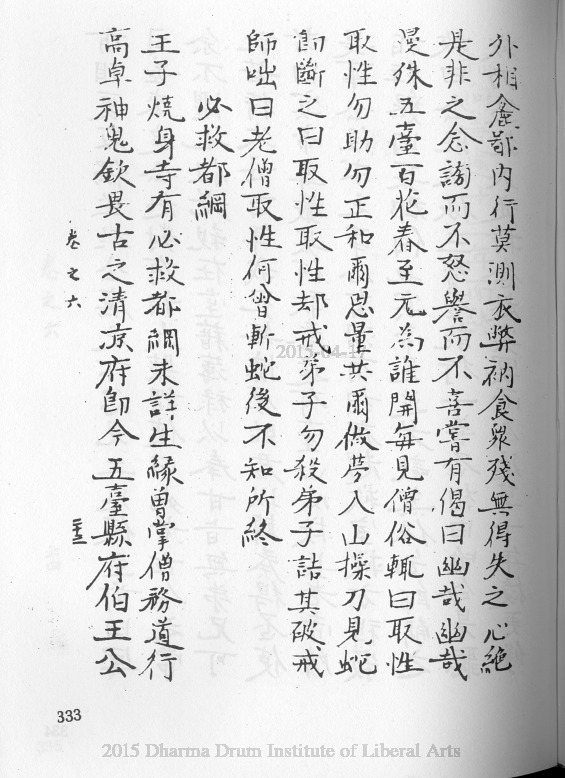 外相麁鄙內行莫測衣弊衲食眾殘無得失之心絕
是非之念謗而不怒譽而不喜嘗有偈曰幽哉幽哉
曼殊五臺百花春至元為誰開每見僧俗輒曰取性
取性勿助勿正和爾思量共爾做夢入山操刀見蛇
即斷之曰取性取性却戒弟子勿殺弟子詰其破戒
師咄曰老僧取性何曾斬蛇後不知所終
必救都綱
王子燒身寺有必救都綱未詳生緣曾掌僧務道行
高卓神鬼欽畏古之清涼府即今五臺縣府伯王公
卷之六
333
2015-04-17
2015 Dharma Drum Institute of Liberal Arts